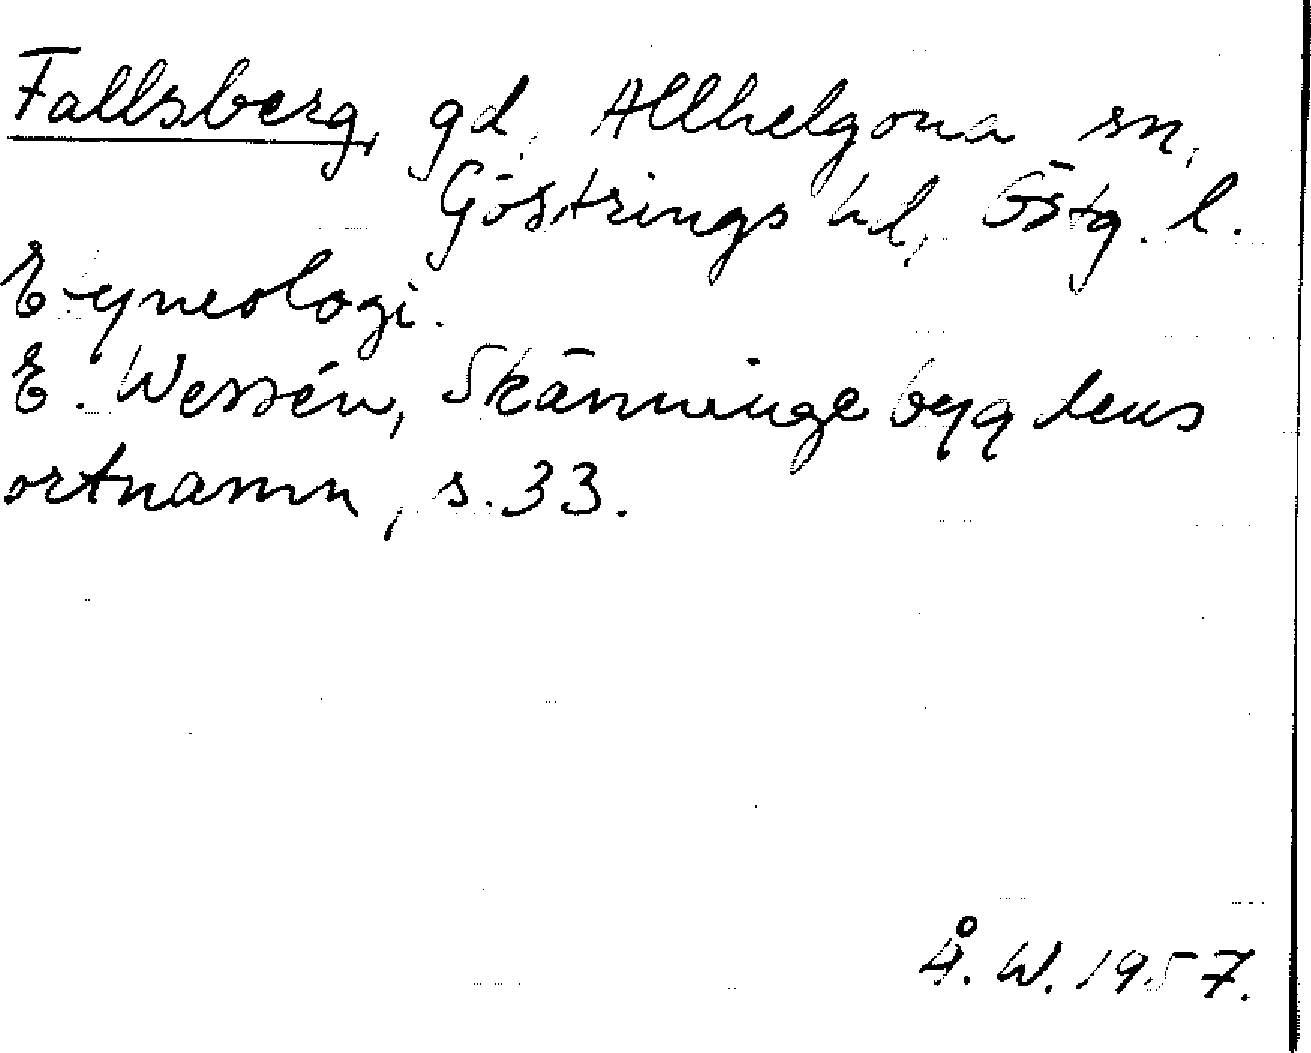 Fallsberg, gd, Allhelgona sn,
Göstrings hd, Östg. l.
E-ymologi.
E. Wessén, Skänningebygdens
ortnamn, s. 33.
Å. W. 1957.